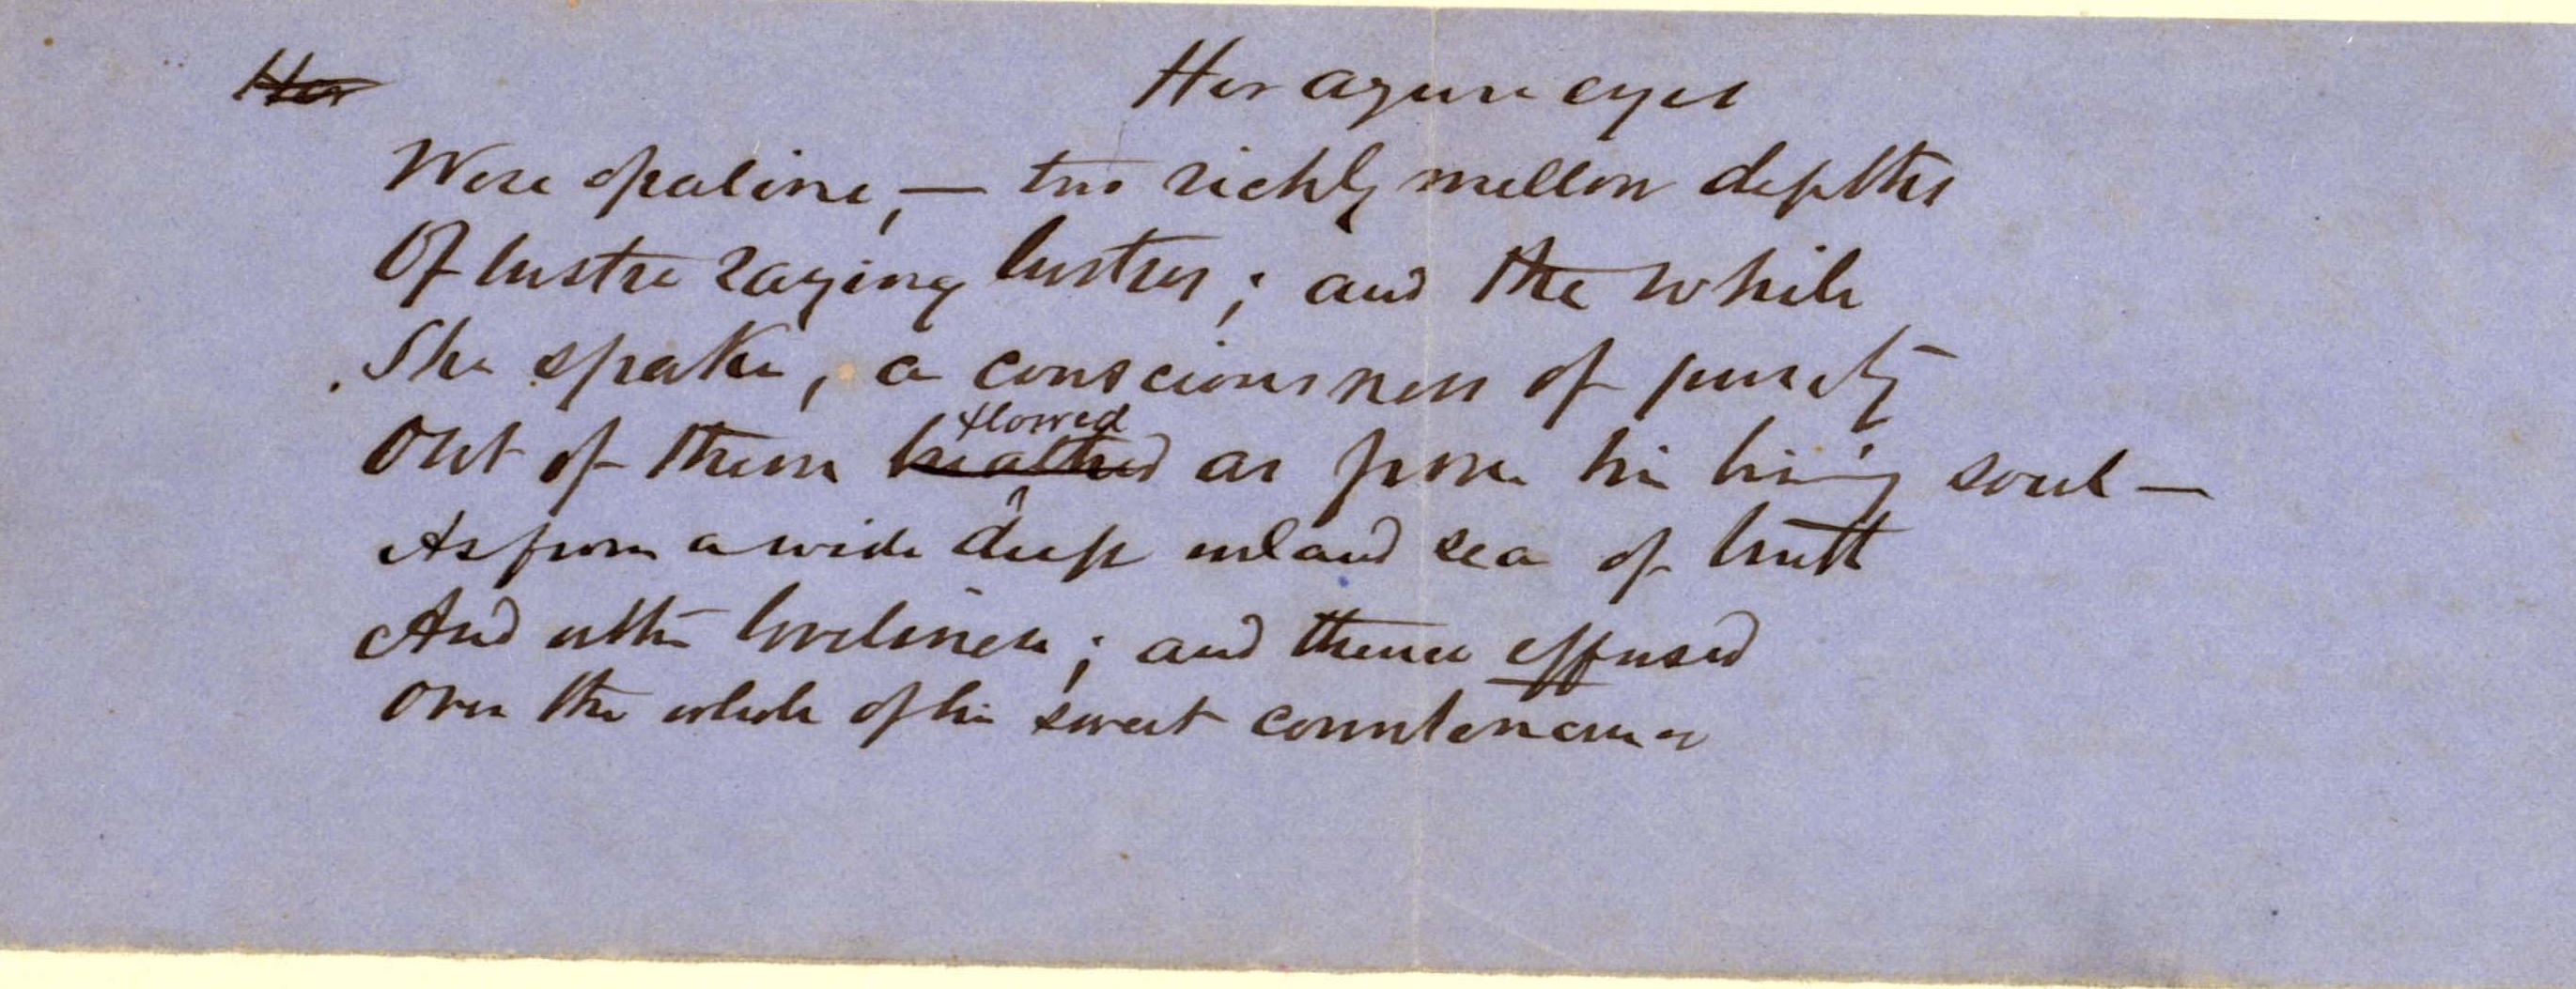 Her Her azure eyes
Were opaline, — two richly mellow depths
Of lustre raying lustres; and the while
She spake, a consciousness of purity
flowed
Out of them breathed as from her living soul —
As from a wide deep inland sea of truth
And utter loveliness; and thence effused
Over the whole of her sweet countenance